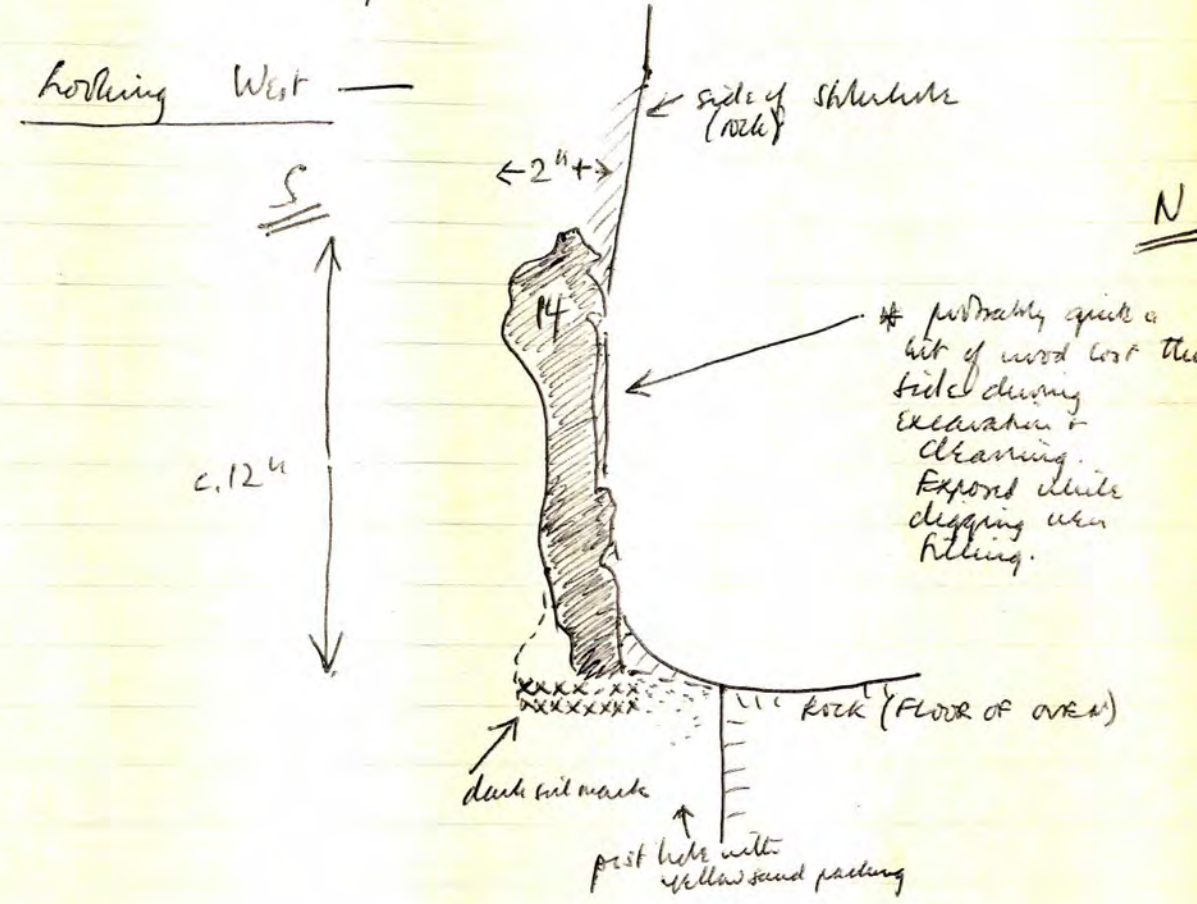 Looking West —
side of stokehole
(rock)
←2"+→
S
N
14
* probably quite a
bit of wood lost this
side during
excavation +
cleaning.
Exposed while
digging oven
filling.
c.12"
xxxx xx
xxxxxxxx
ROCK (FLOOR OF OVEN)
dark soil mark
post hole with
yellow sand packing